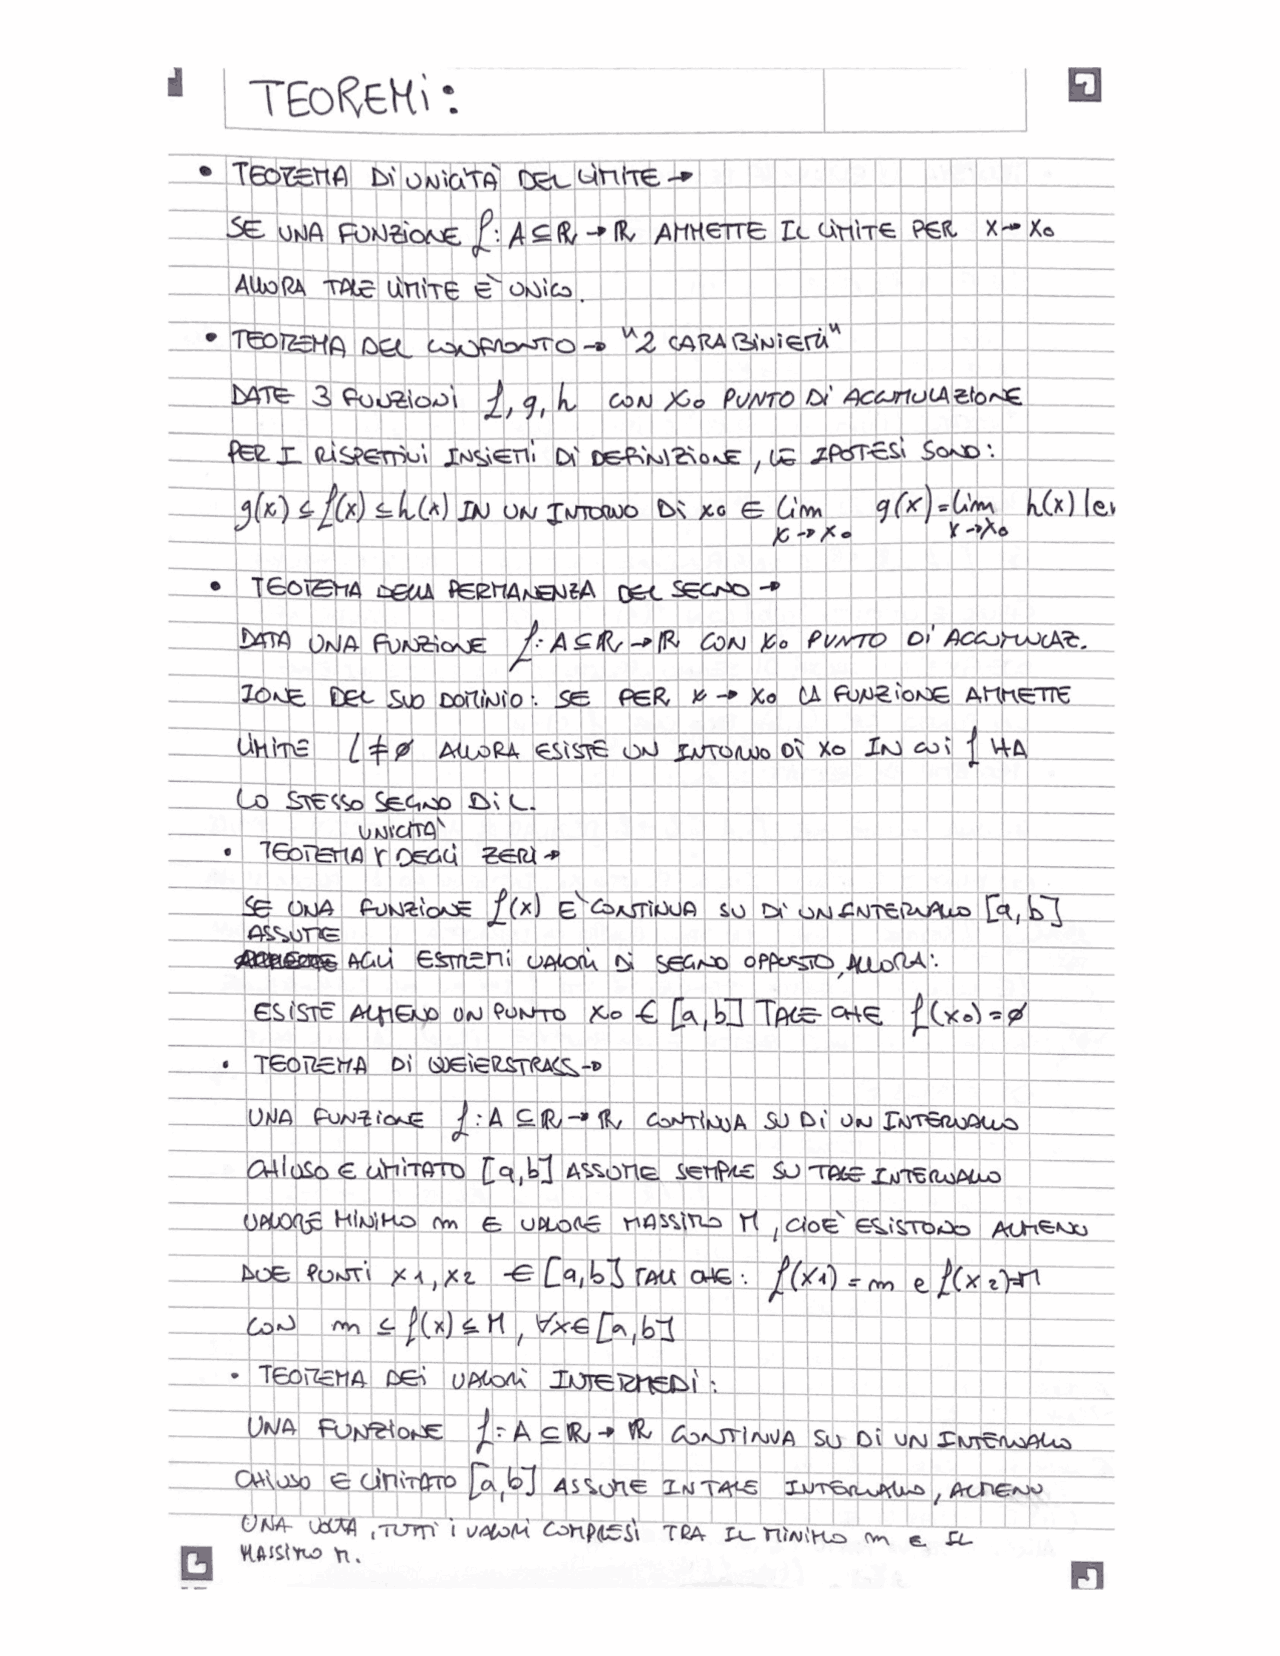 TEOREMi:
• TEOREMA Di UNiCiTÀ DEL LiMiTE →
SE UNA FUNZiONE f: A ⊆ ℝ → ℝ AMMETTE IL LiMiTE PER x → x₀
ALLORA TALE LiMiTE È UNiCO.
• TEOREMA DEL CONFRONTO → "2 CARABiNiERi"
DATE 3 FUNZiONi f, g, h CON x₀ PUNTO Di ACCUMULAZIONE
PER I RiSPETTiVi INSiEMi Di DEFiNIZiONE, LE IPOTESi SONO:
g(x) ≤ f(x) ≤ h(x) IN UN INTORNO Di x₀ E lim x→x₀ g(x) = lim x→x₀ h(x)
• TEOREMA DELLA PERMANENZA DEL SEGNO →
DATA UNA FUNZiONE f: A ⊆ ℝ → ℝ CON x₀ PUNTO Di ACCUMULAZ.
IONE DEL SUO DOMiNiO: SE PER x → x₀ LA FUNZiONE AMMETTE
LiMiTE l ≠ ∅ ALLORA ESiSTE UN INTORNO Di x₀ IN CUi f HA
LO STESSO SEGNO Di L.
UNiCiTÀ
• TEOREMA DEGLi ZERi →
SE UNA FUNZiONE f(x) È CONTiNUA SU Di UN INTERVALLO [a,b]
ASSUME
AGLi ESTREMi VALORi Di SEGNO OPPOSTO, ALLORA:
ESiSTE ALMENO UN PUNTO x₀ ∈ [a,b] TALE CHE f(x₀) = ∅
• TEOREMA Di WEiERSTRASS →
UNA FUNZiONE f: A ⊆ ℝ → ℝ CONTiNUA SU Di UN INTERVALLO
CHiUSO E LiMiTATO [a,b] ASSUME SEMPRE SU TALE INTERVALLO
VALORE MiNiMO m E VALORE MASSiMO M, CiOÈ ESiSTONO ALMENO
DUE PUNTi x1, x2 ∈ [a,b] TALi CHE: f(x1) = m e f(x2)=M
CON m ≤ f(x) ≤ M, ∀x∈[a,b]
• TEOREMA DEi VALORi INTERMEDi:
UNA FUNZiONE f: A ⊆ ℝ → ℝ CONTiNUA SU Di UN INTERVALLO
CHiUSO E LiMiTATO [a,b] ASSUME IN TALE INTERVALLO, ALMENO
UNA VOLTA, TUTTi i VALORi COMPRESi TRA IL MiNiMO m E IL
MASSiMO M.